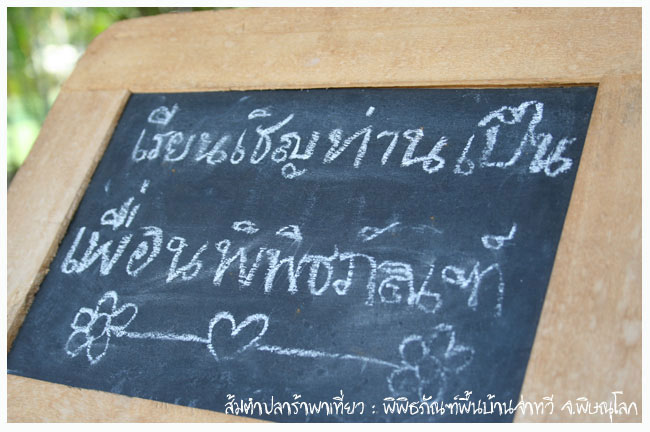 เรียนเชิญท่านเป็น
เพื่อนพิพิธภัณฑ์
ส้มตำปลาร้าพาเที่ยว : พิพิธภัณฑ์พื้นบ้านจ่าทวี จ.พิษณุโลก